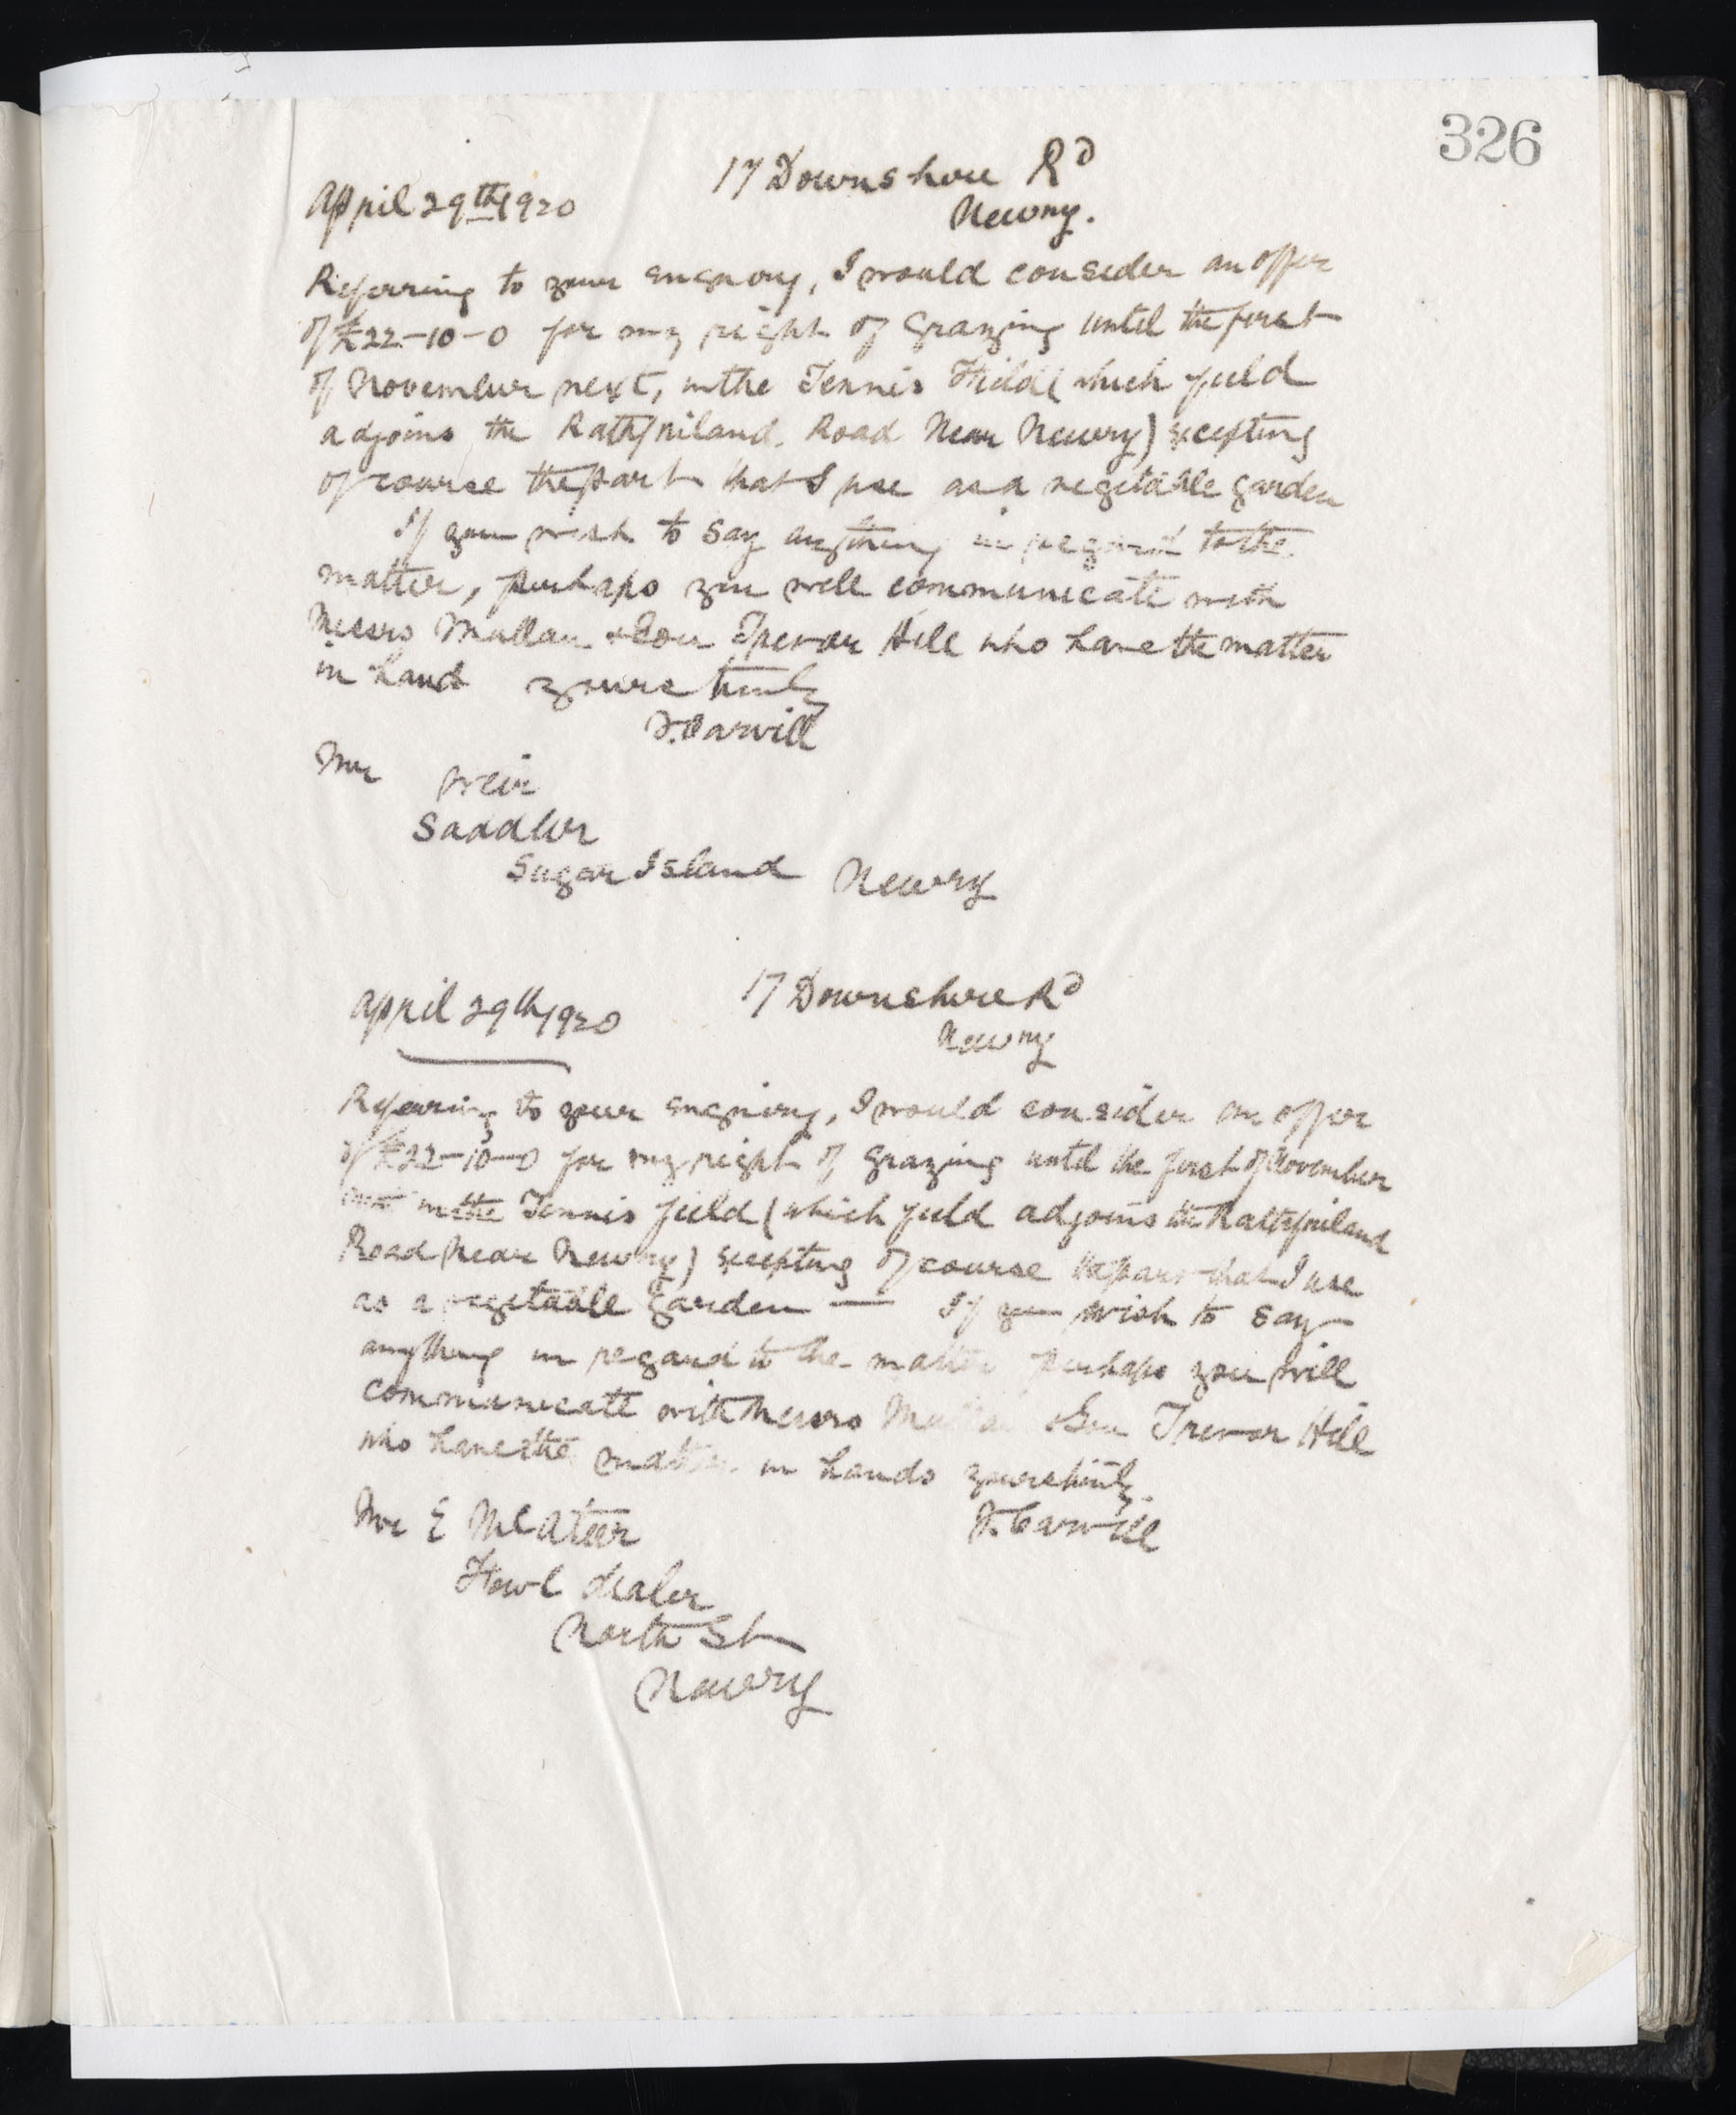 326
17 Downshire Rd
April 29th 1920
Newry.
Referring to your enquiry, I would consider an offer
of £22-10-0 for my right of grazing until the first
of November next, in the Tennis Field (which field
adjoins the Rathfriland Road Near Newry) excepting
of course the part that I use as a vegetable garden
If you wish to say anything in regard to the
matter, perhaps you will communicate with
Messrs Mullan & Son Trevor Hill who have the matter
in hand yours truly
J. Carvill
Mr Weir
Saddler
Sugar Island Newry
17 Downshire Rd
April 29th 1920
Newry
Referring to your enquiry, I would consider an offer
of £22-10-0 for my right of grazing until the first of November
next in the Tennis field (which field adjoins the Rathfriland
Road Near Newry) excepting of course the part that I use
as a vegetable garden — If you wish to say
anything in regard to the matter perhaps you will
communicate with Messrs Mullan & Son Trevor Hill
who have the matter in hands yours truly
J. Carvill
Mr E McAteer
Fowl dealer
North St
Newry